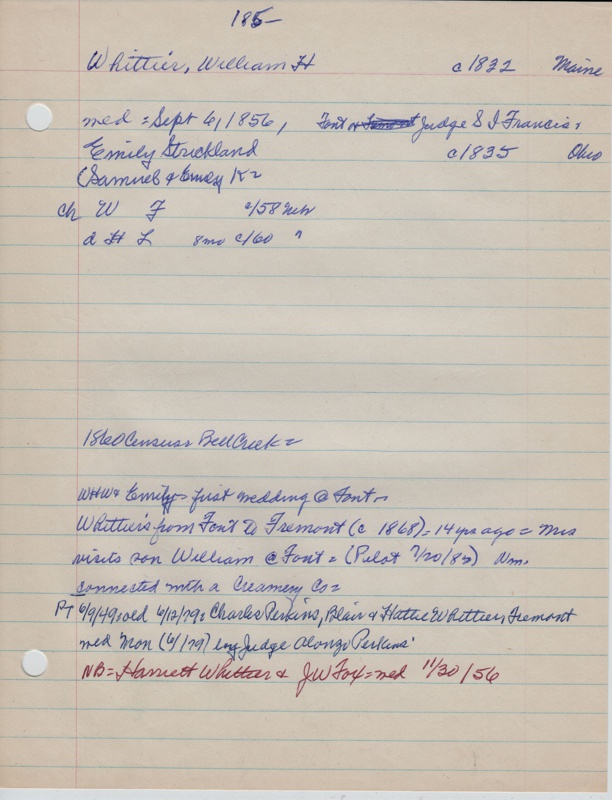 185-
Whittier, William H c1832 Maine
med = Sept 6, 1856, Font Judge S I Francis =
Emily Strickland c1835 Ohio
(Samuel & Emily K=
ch W F c/58 Neb
d H L 8mo c/60 "
1860 Census = Bell Creek =
WHW & Emily = first wedding @ Font =
Whittiers from Font to Fremont (c 1868) = 14 yrs ago = Mrs
visits son William @ Font = (Pilot 7/20/82) Wm.
connected with a Creamery Co =
PT 6/9/49 = old 6/12/79 = Charles Perkins, Blair & Hattie Whittier, Fremont
med Mon (6/79) by Judge Alonzo Perkins'
NB = Harriett Whittier & J W Fox = med 11/30/56